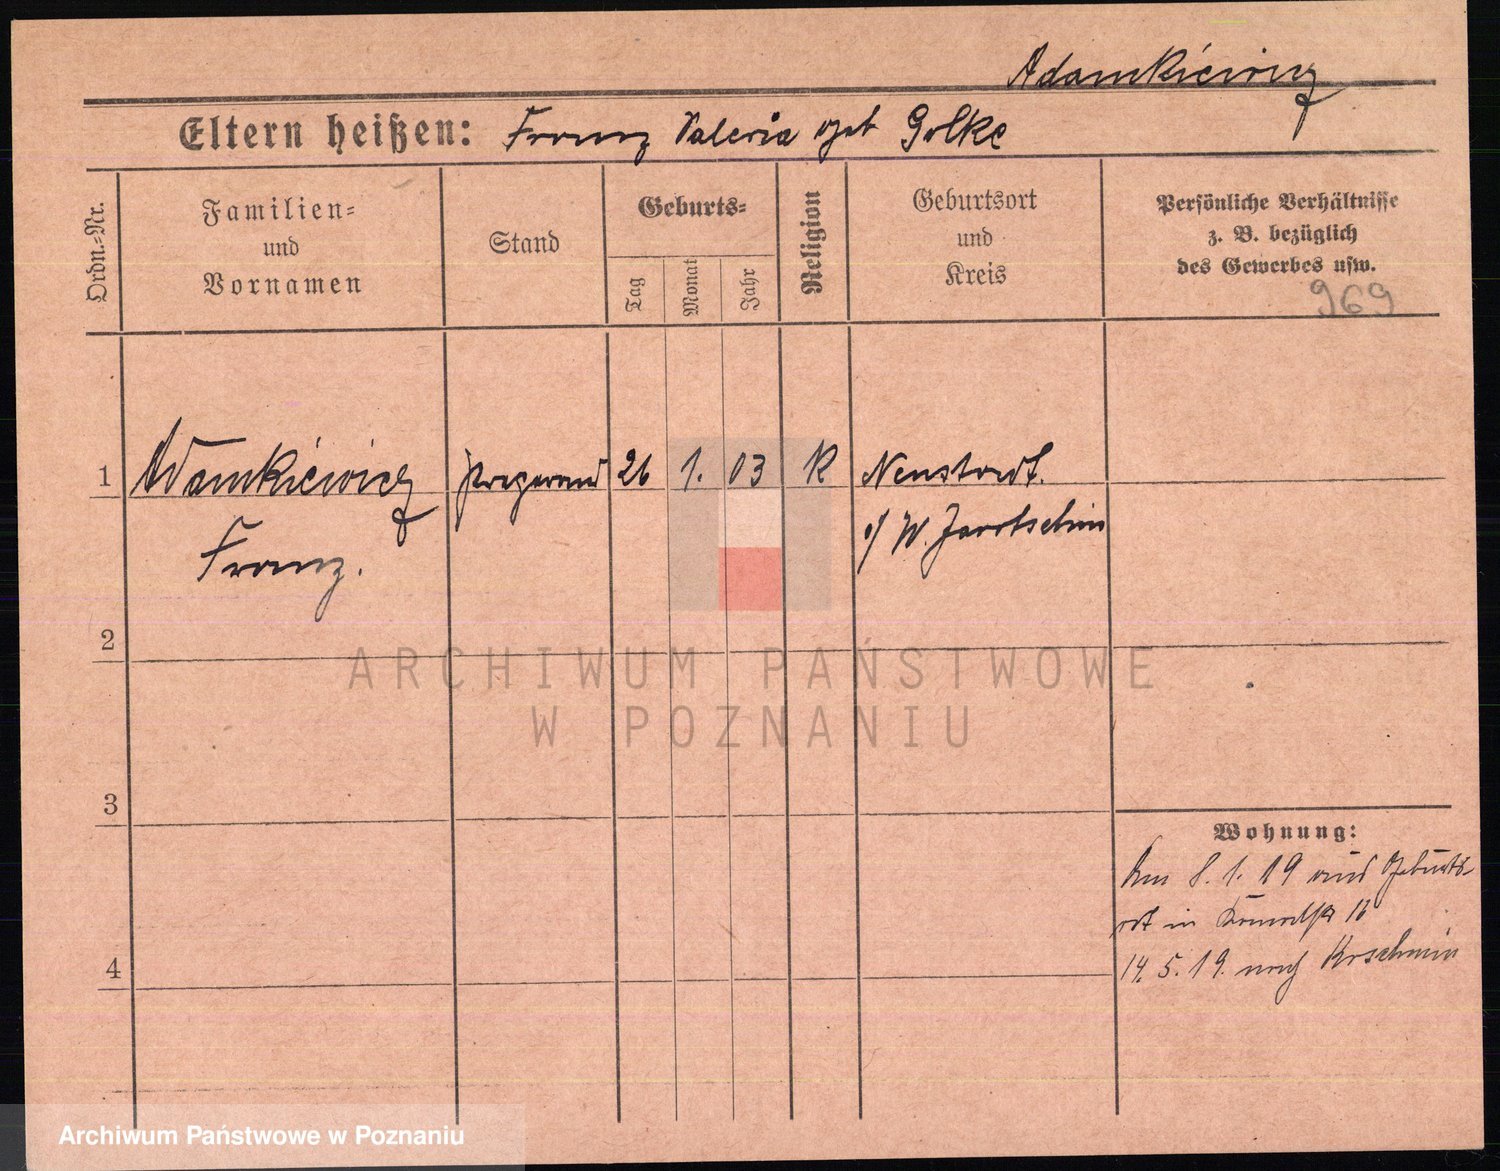 Adamkiewicz
Eltern heißen: Franz Valeria geb Golke
Ordn.=Nr.
Familien=
und
Vornamen
Stand
Geburts=
Tag
Monat
Jahr
Religion
Geburtsort
und
Kreis
Persönliche Verhältnisse
z. B. bezüglich
des Gewerbes usw.
969
1 Adamkiewicz Preparand 26 1. 03 K Neustadt
Franz.
a/ W. Jarotschin
2
3
4
Wohnung:
Am 8. 1. 19 aus Geburts-
ort in 16
14. 5. 19. nach Koschmin
ARCHIWUM PAŃSTWOWE
W POZNANIU
Archiwum Państwowe w Poznaniu